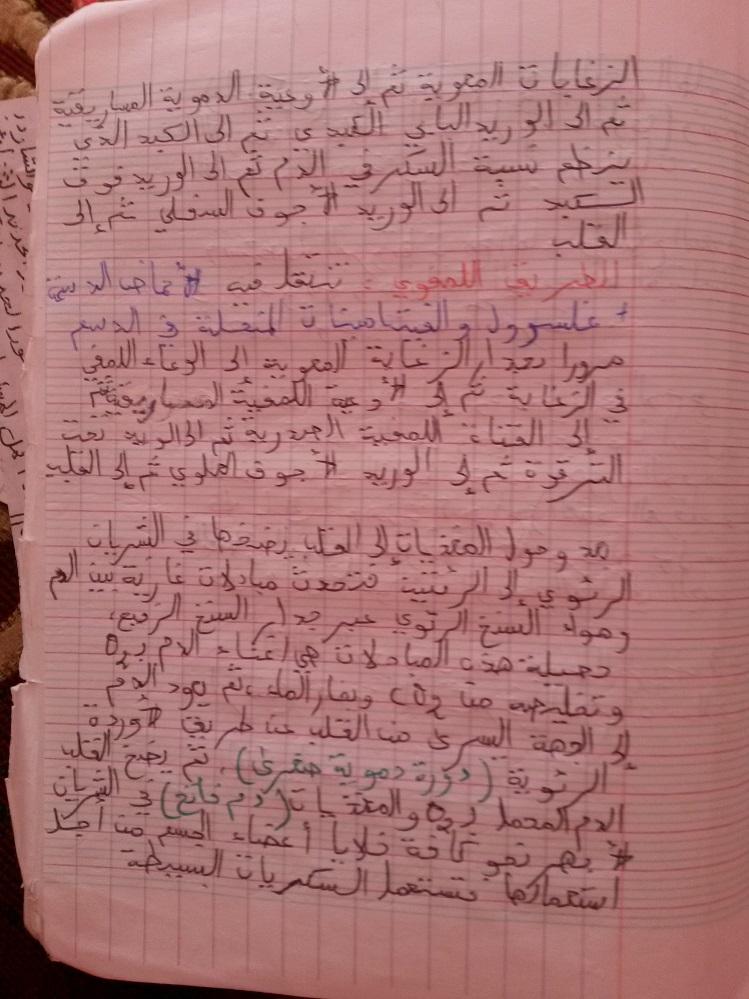 الزغابات المعوية ثم إلى الأوعية الدموية المساريقية
ثم الى الوريد البابي الكبدي ثم الى الكبد الذي
ينظم نسبة السكر في الدم ثم الى الوريد فوق
الكبد ثم الى الوريد الأجوف السفلي ثم إلى
القلب
الطريق اللمفاوي : تنتقل فيه الأحماض الدسمة
+ غليسرول والفيتامينات المنحلة في الدسم
مرورا بجدار الزغابة المعوية إلى الوعاء اللمفي
في الزغابة ثم إلى الأوعية اللمفية المساريقية ثم
إلى القناة اللمفية الصدرية ثم الى الوريد تحت
الترقوة ثم إلى الوريد الأجوف العلوي ثم إلى القلب
بعد وصول المغذيات إلى القلب يضخها في الشريان
الرئوي إلى الرئتين فتحدث مبادلات غازية بين الدم
وهواء السنخ الرئوي عبر جدار السنخ الرقيع،
حصيلة هذه المبادلات هي اغتناء الدم بـ O2
وتخليصه من CO2 وبخار الماء، ثم يعود الدم
إلى الجهة اليسرى من القلب عن طريق الأوردة
الرئوية (دورة دموية صغرى)، ثم يضخ القلب
الدم المحمل بـ O2 والمغذيات (دم فاتح) في الشريان
الأبهر نحو كافة خلايا أعضاء الجسم من أجل
استعمالها فتستعمل السكريات البسيطة